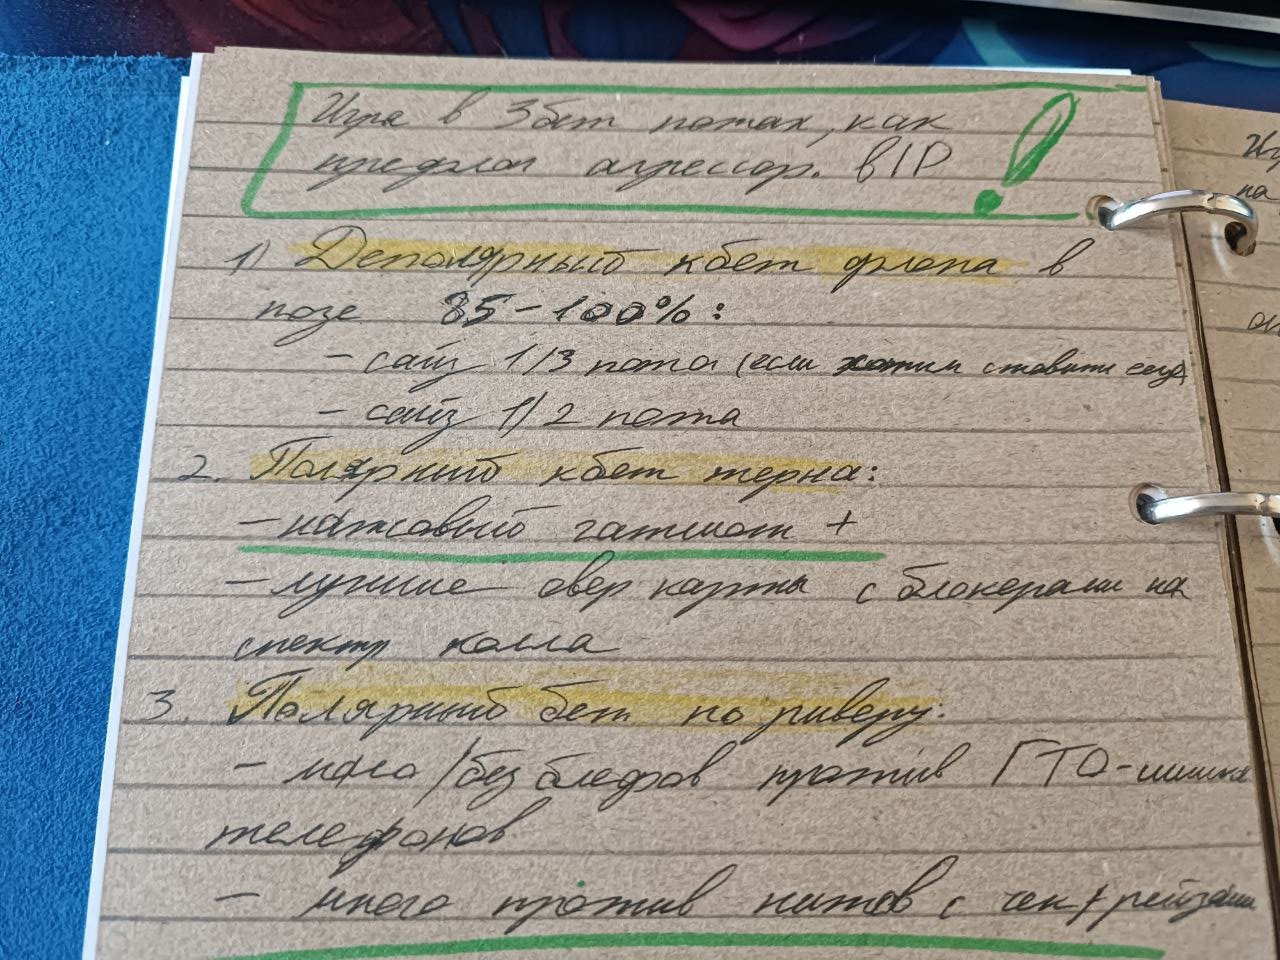 Игра в 3бет потах, как
префлоп агрессор. в IP
1) Деполярный кбет флопа в
позе 85-100%:
- сайз 1/3 пота (если хотим ставить
- сайз 1/2 пота
2. Полярный кбет терна:
- натсовый гатшот +
- лучшие овер карты с блокерами на
спектр колла
3. Полярный бет по риверу:
- мало/без блефов против ГТО-шных
телефонов
- много против нитов с чек/рейзами
Иг
на